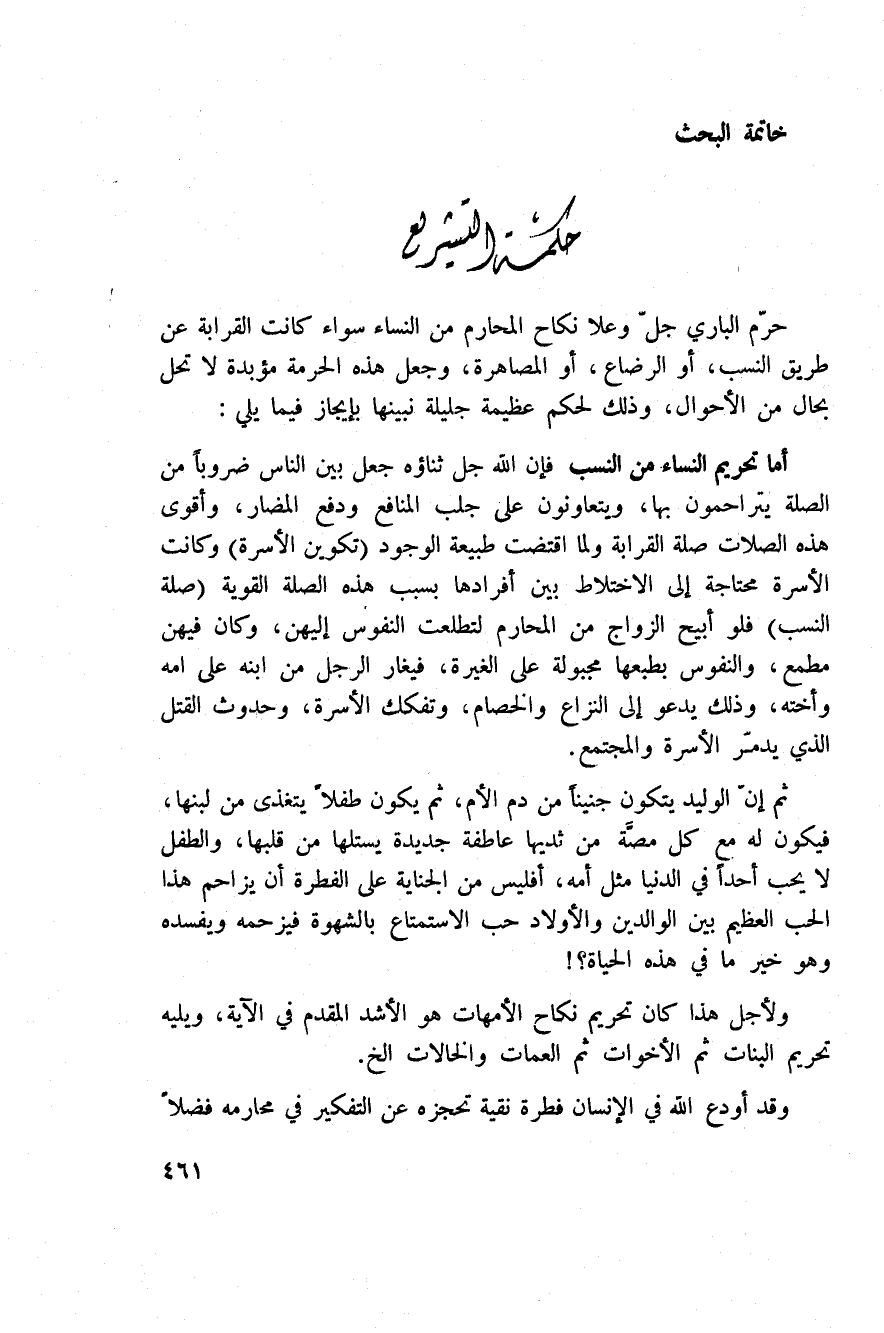 خاتمة البحث
حكمة التشريع
حرّم الباري جلّ وعلا نكاح المحارم من النساء سواء كانت القرابة عن
طريق النسب، أو الرضاع، أو المصاهرة، وجعل هذه الحرمة مؤبدة لا تحل
بحال من الأحوال، وذلك لحكم عظيمة جليلة نبينها بإيجاز فيما يلي :
أما تحريم النساء من النسب فإن الله جل ثناؤه جعل بين الناس ضروباً من
الصلة يتراحمون بها، ويتعاونون على جلب المنافع ودفع المضار، وأقوى
هذه الصلات صلة القرابة ولما اقتضت طبيعة الوجود (تكوين الأسرة) وكانت
الأسرة محتاجة إلى الاختلاط بين أفرادها بسبب هذه الصلة القوية (صلة
النسب) فلو أبيح الزواج من المحارم لتطلعت النفوس إليهن، وكان فيهن
مطمع، والنفوس بطبعها مجبولة على الغيرة، فيغار الرجل من ابنه على امه
وأخته، وذلك يدعو إلى النزاع والخصام، وتفكك الأسرة، وحدوث القتل
الذي يدمّر الأسرة والمجتمع.
ثم إنّ الوليد يتكون جنيناً من دم الأم، ثم يكون طفلاً يتغذى من لبنها،
فيكون له مع كل مصَّة من ثديها عاطفة جديدة يستلها من قلبها، والطفل
لا يحب أحداً في الدنيا مثل أمه، أفليس من الجناية على الفطرة أن يزاحم هذا
الحب العظيم بين الوالدين والأولاد حب الاستمتاع بالشهوة فيزحمه ويفسده
وهو خير ما في هذه الحياة؟!
ولأجل هذا كان تحريم نكاح الأمهات هو الأشد المقدم في الآية، ويليه
تحريم البنات ثم الأخوات ثم العمات والخالات الخ.
وقد أودع الله في الإنسان فطرة نقية تحجزه عن التفكير في محارمه فضلاً
٤٦١